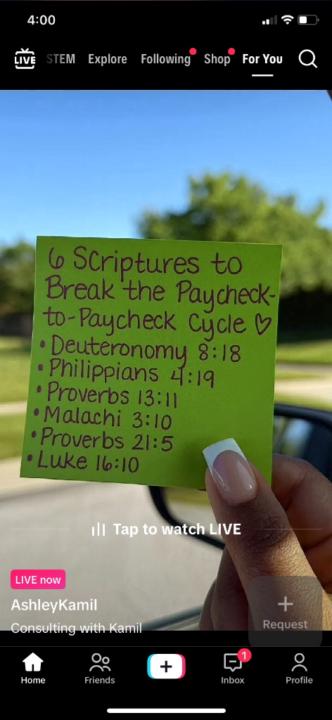 4:00
LIVE
STEM
Explore
Following
Shop
For You
6 Scriptures to
Break the Paycheck-
to-Paycheck Cycle ♡
• Deuteronomy 8:18
• Philippians 4:19
• Proverbs 13:11
• Malachi 3:10
• Proverbs 21:5
• Luke 16:10
Tap to watch LIVE
LIVE now
AshleyKamil
Consulting with Kamil
Request
Home
Friends
1
Inbox
Profile